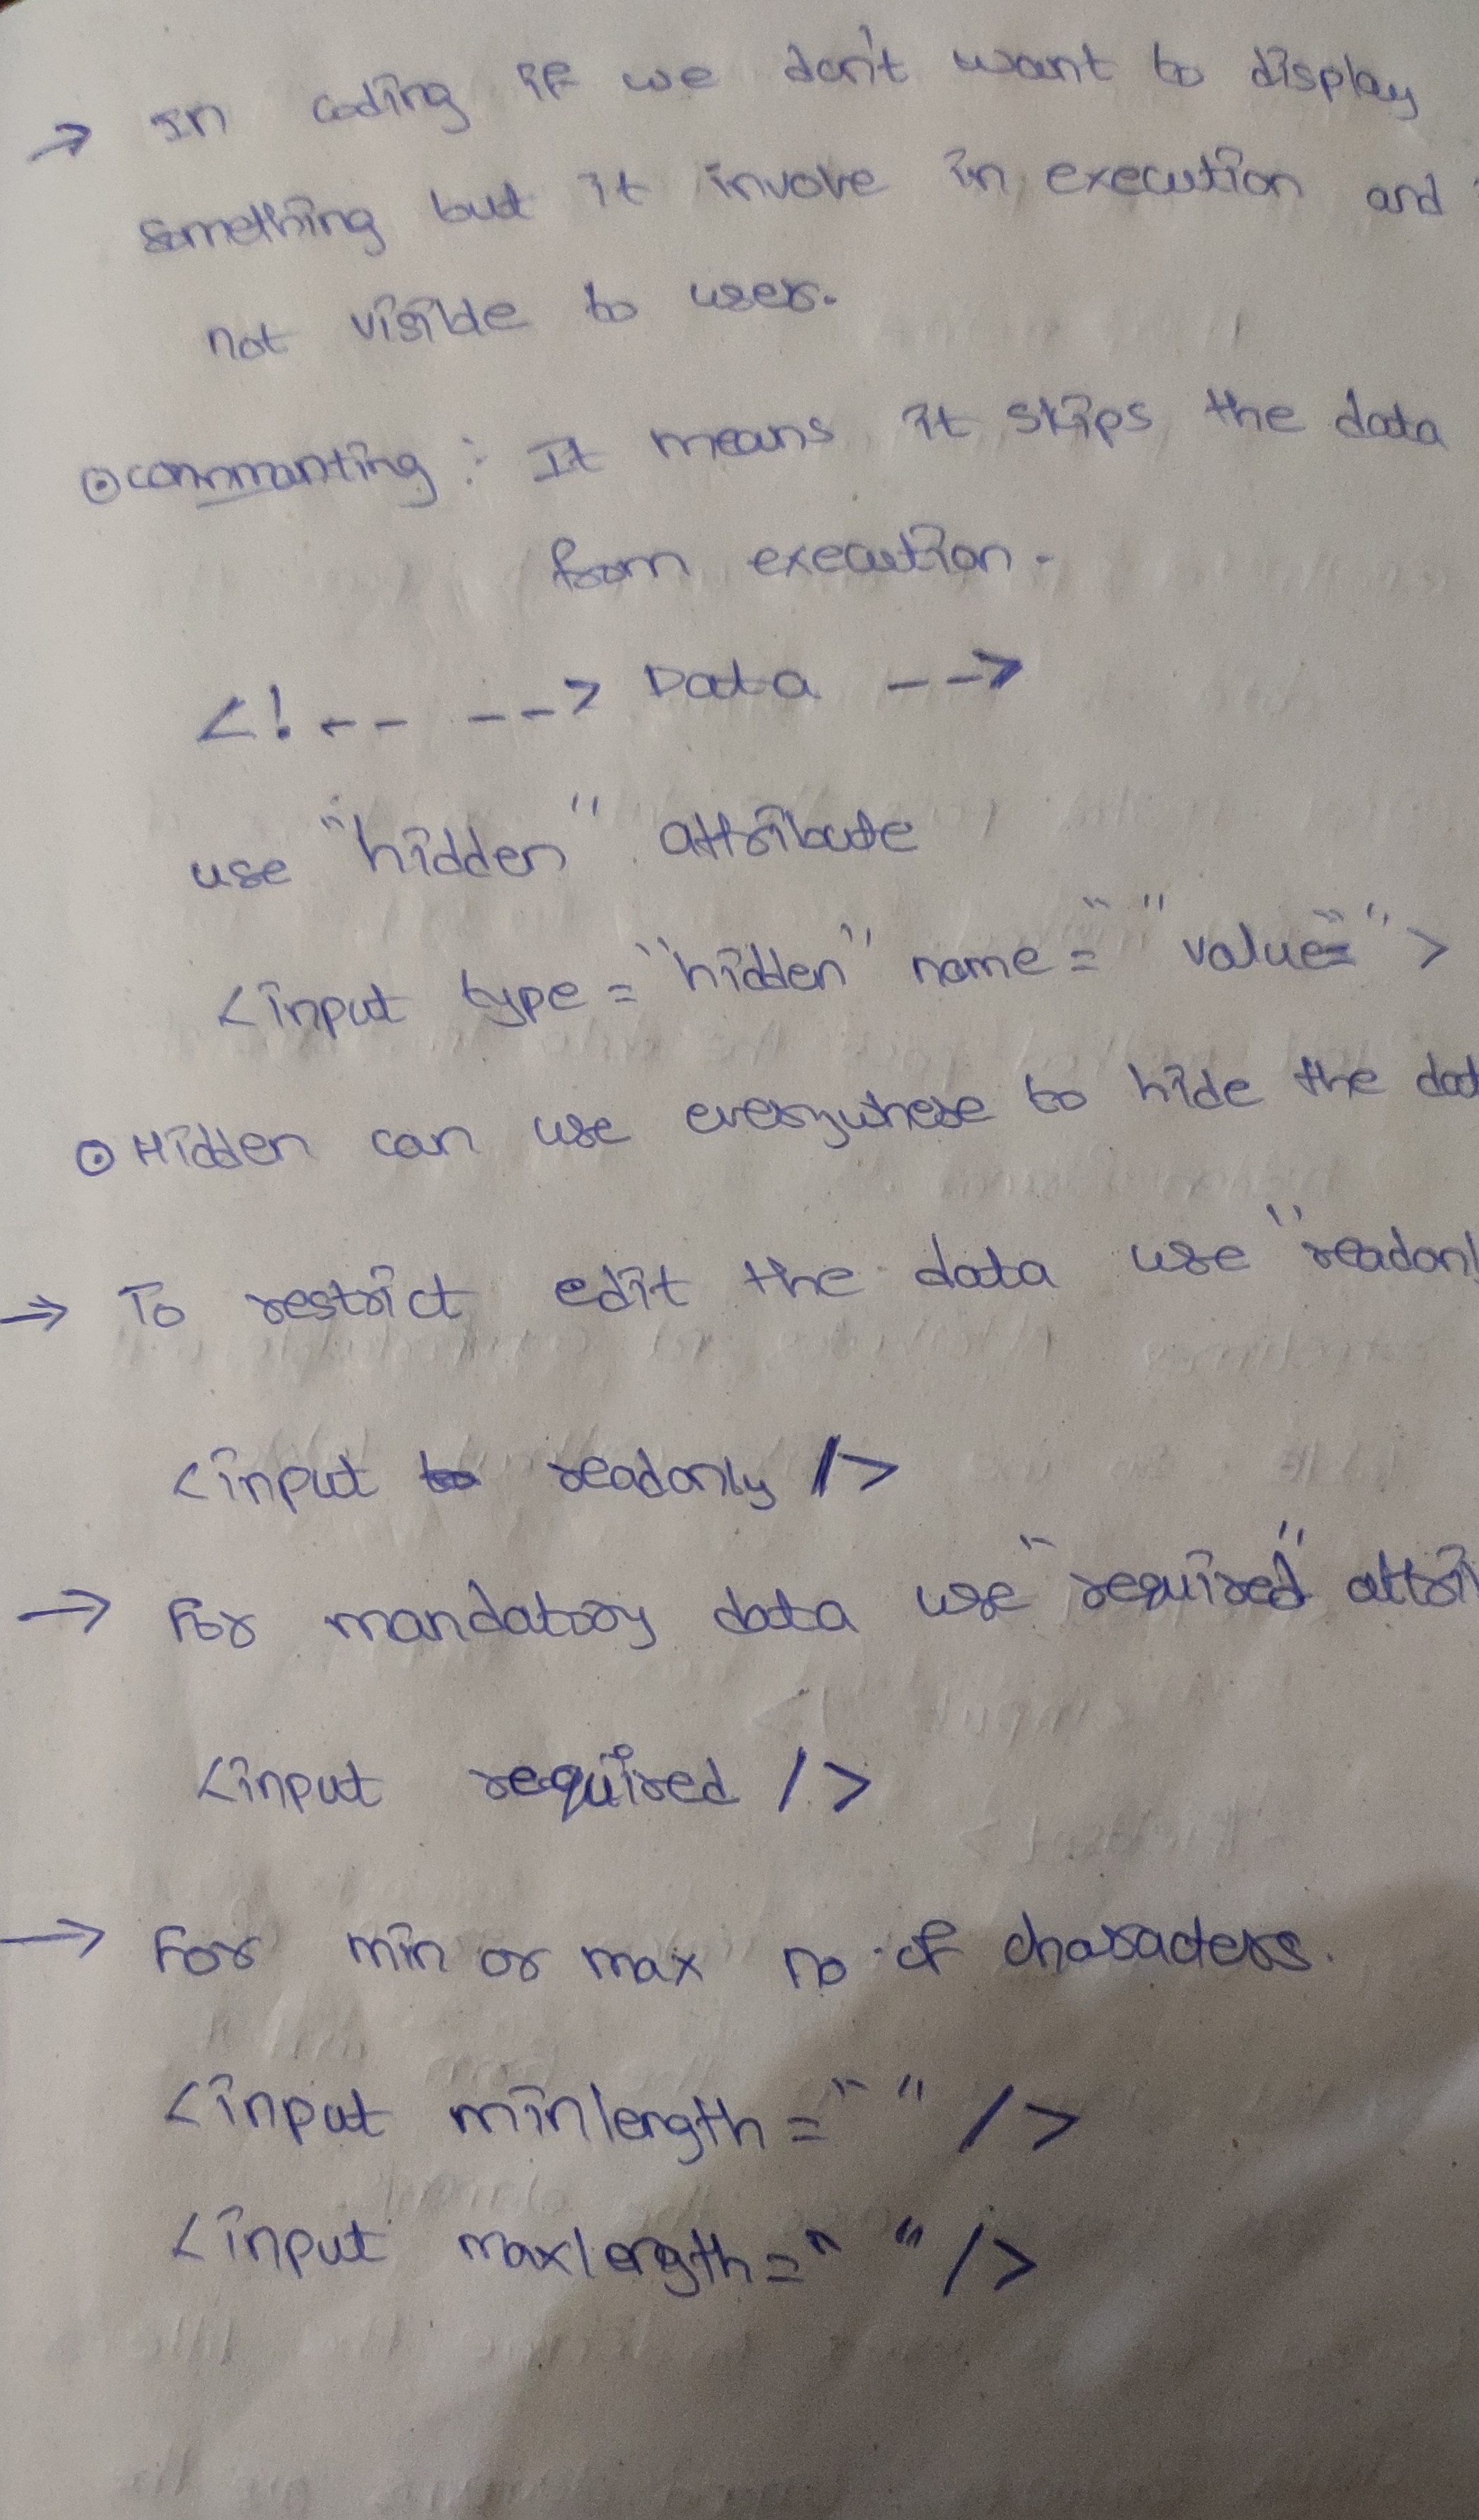 → In coding if we don't want to display
something but it invove in execution and
not visible to user.
⊙ commanting : It means it skips the data
from execution.
<!-- --> Data -->
use "hidden" attribute
<input type = "hidden" name = " " value=" ">
⊙ Hidden can use everywhere to hide the dat
→ To restrict edit the data use "readonl
<input readonly />
→ For mandatory data use "required" attri
<input required />
→ For min or max no. of characters.
<input minlength = " " />
<input maxlength = " " />